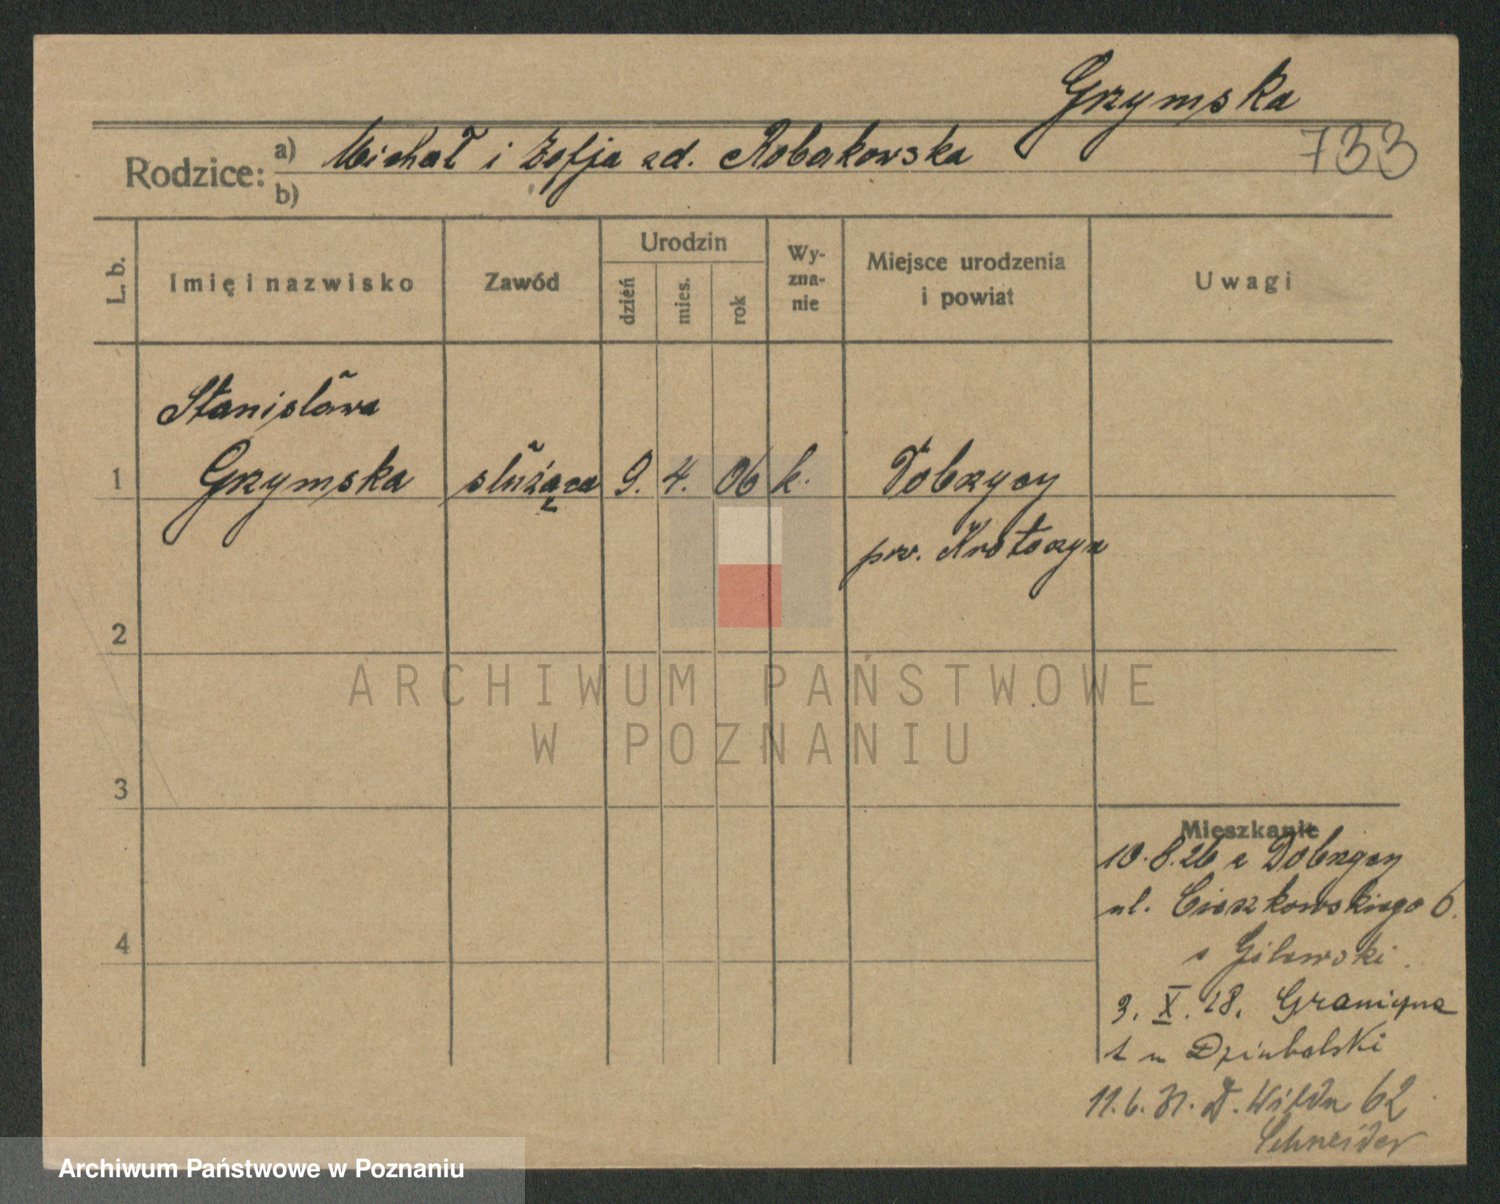 Grzymska
733
Rodzice: a) Michał i Zofja zd. Robakowska
b)
L. b.
Imię i nazwisko
Zawód
Urodzin
dzień
mies.
rok
Wy-
zna-
nie
Miejsce urodzenia
i powiat
Uwagi
Stanisława
1 Grzymska służąca 9. 4. 06 k. Dobrzycy
pow. Krotoszyn
2
3
4
Mieszkanie
10.8.26 z Dobrzycy
ul. Cieszkowskiego 6.
Gilewski.
3. X. 28. Graniczna
1 u Dziubalski
11.6.31. D. Wilda 62
Schneider
ARCHIWUM PAŃSTWOWE
W POZNANIU
Archiwum Państwowe w Poznaniu